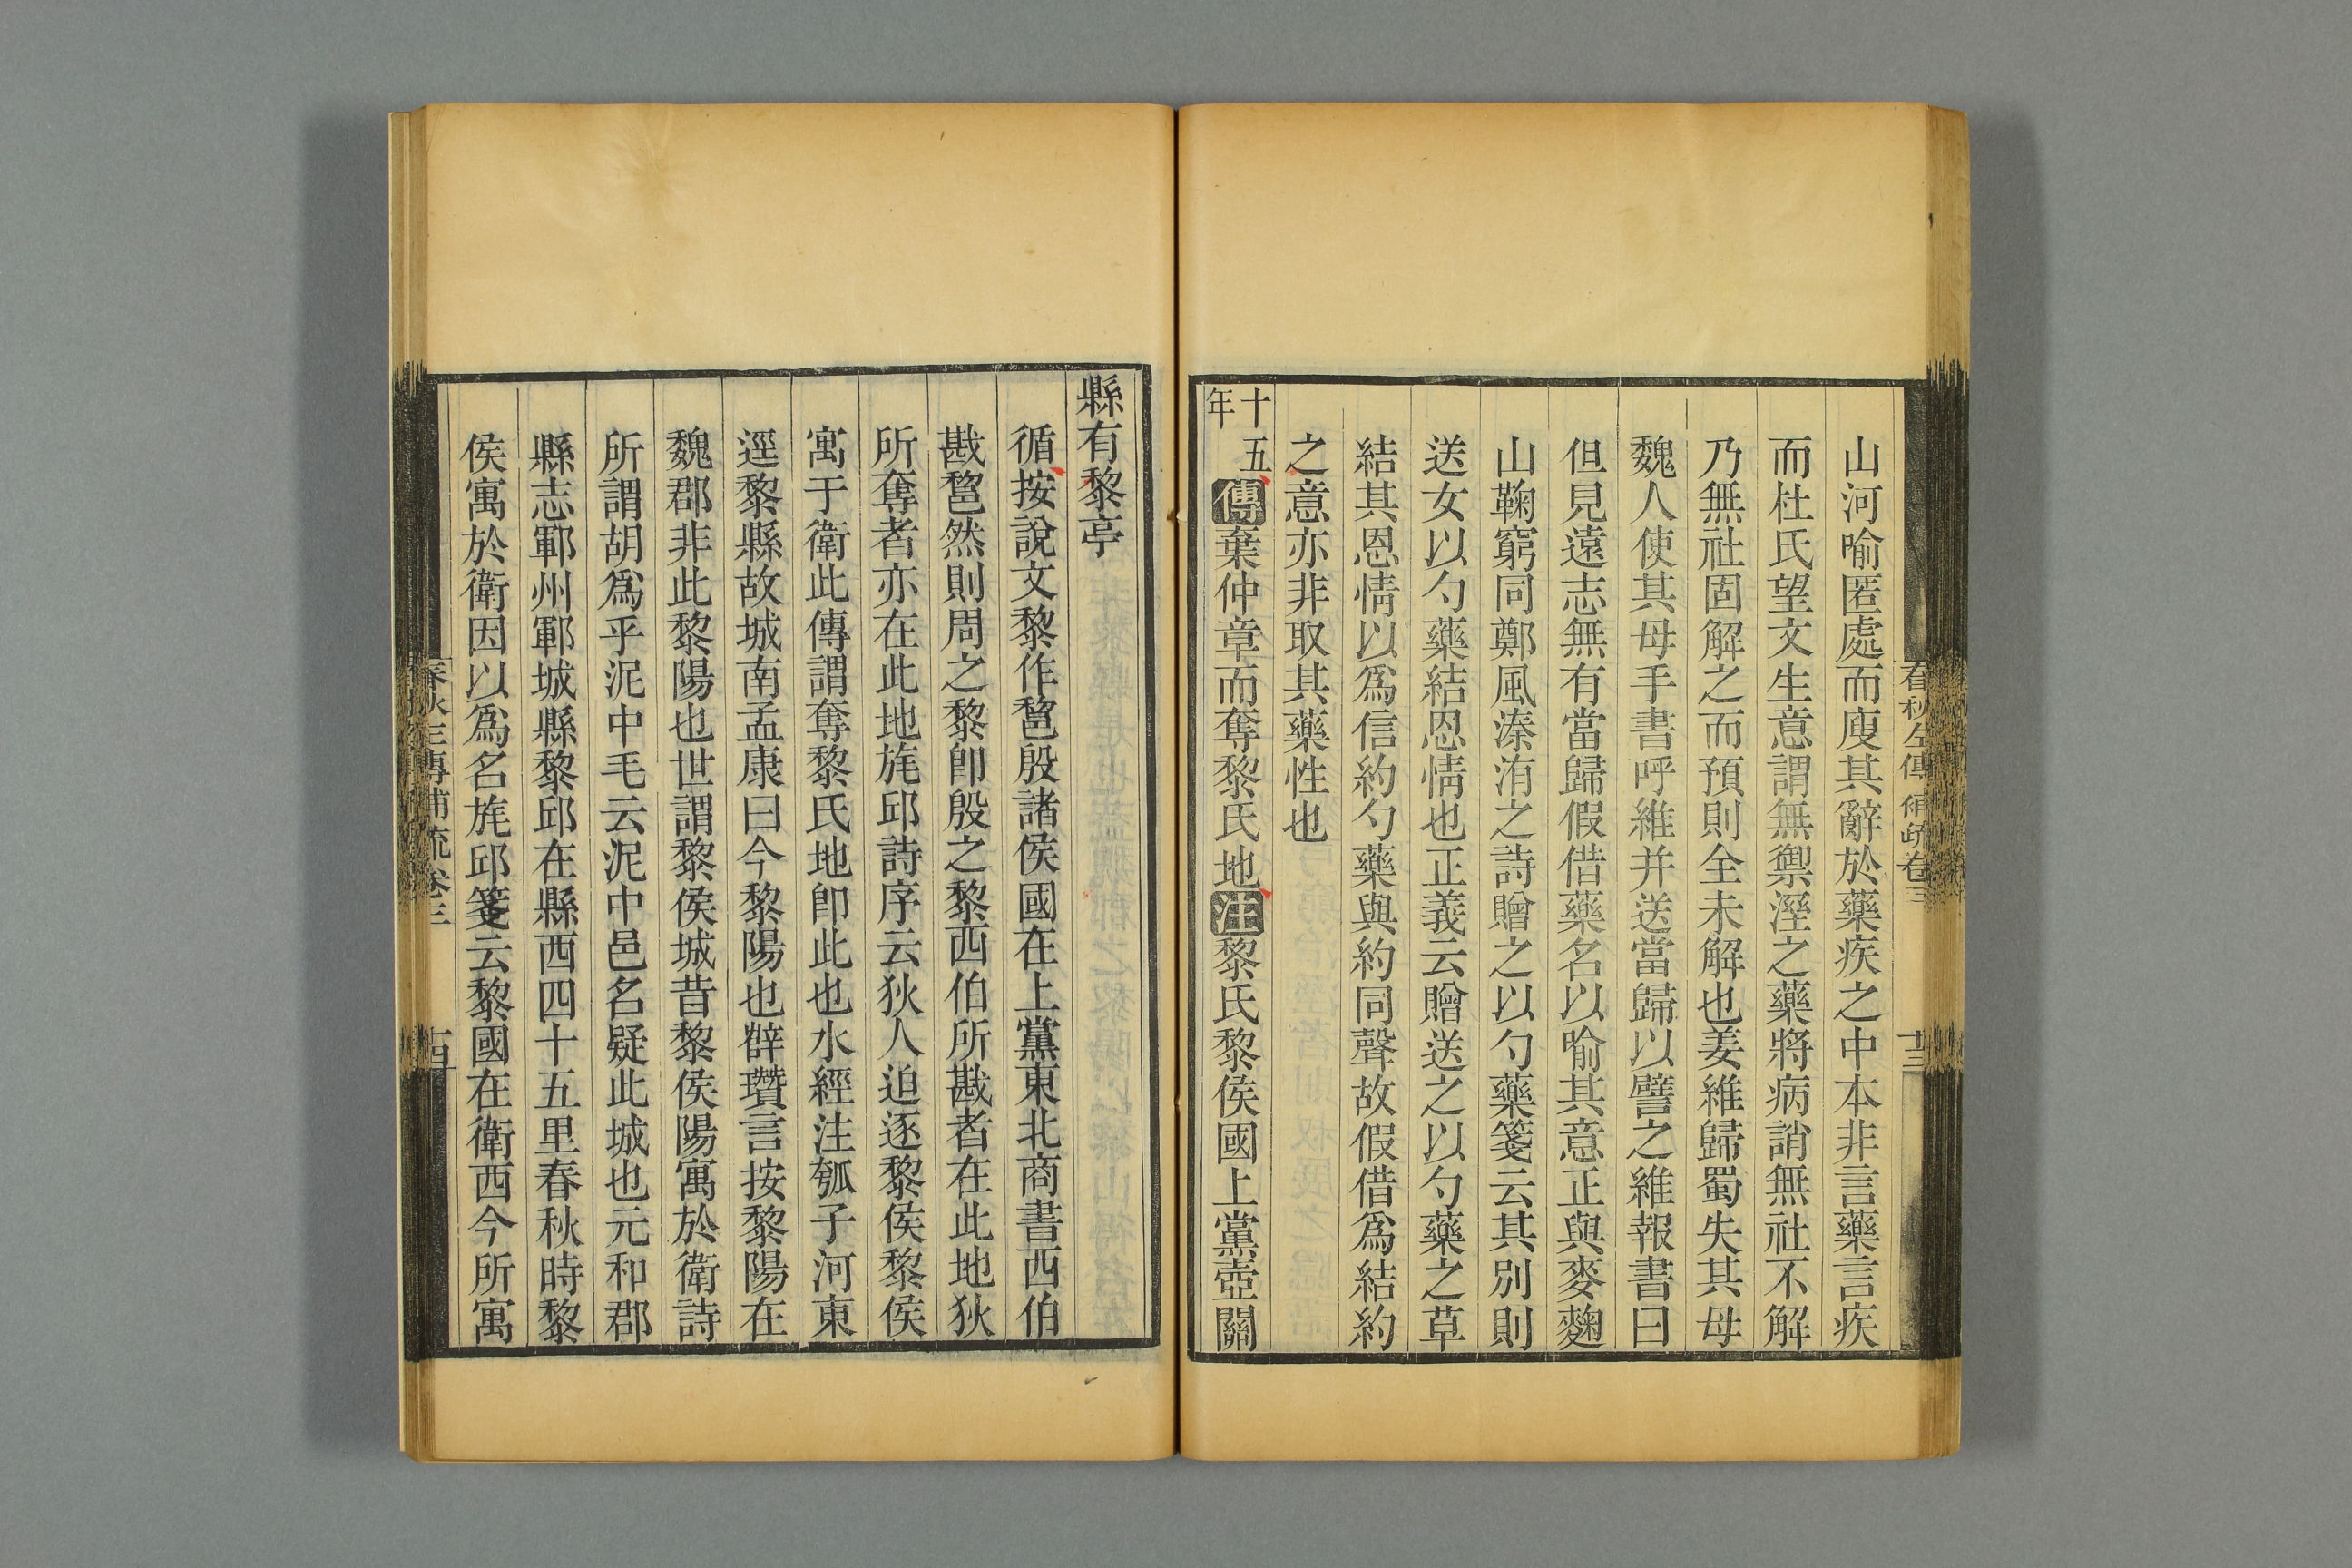 春秋左傳補疏卷三
十三
山河喻匿處而廋其辭於藥疾之中本非言藥言疾
而杜氏望文生意謂無禦溼之藥將病誚無社不解
乃無社固解之而預則全未解也姜維歸蜀失其母
魏人使其母手書呼維并送當歸以譬之維報書曰
但見遠志無有當歸假借藥名以喻其意正與麥麴
山鞠窮同鄭風溱洧之詩贈之以勺藥箋云其別則
送女以勺藥結恩情也正義云贈送之以勺藥之草
結其恩情以爲信約勺藥與約同聲故假借爲結約
之意亦非取其藥性也
十五年傳棄仲章而奪黎氏地注黎氏黎侯國上黨壺關
縣有黎亭
循按說文黎作𨛫殷諸侯國在上黨東北商書西伯
戡𨛫然則周之黎卽殷之黎西伯所戡者在此地狄
所奪者亦在此地旄邱詩序云狄人迫逐黎侯黎侯
寓于衛此傳謂奪黎氏地卽此也水經注瓠子河東
逕黎縣故城南孟康曰今黎陽也薛瓚言按黎陽在
魏郡非此黎陽也世謂黎侯城昔黎侯陽寓於衛詩
所謂胡爲乎泥中毛云泥中邑名疑此城也元和郡
縣志鄆州鄆城縣黎邱在縣西四十五里春秋時黎
侯寓於衛因以爲名旄邱箋云黎國在衛西今所寓
春秋左傳補疏卷三
十四